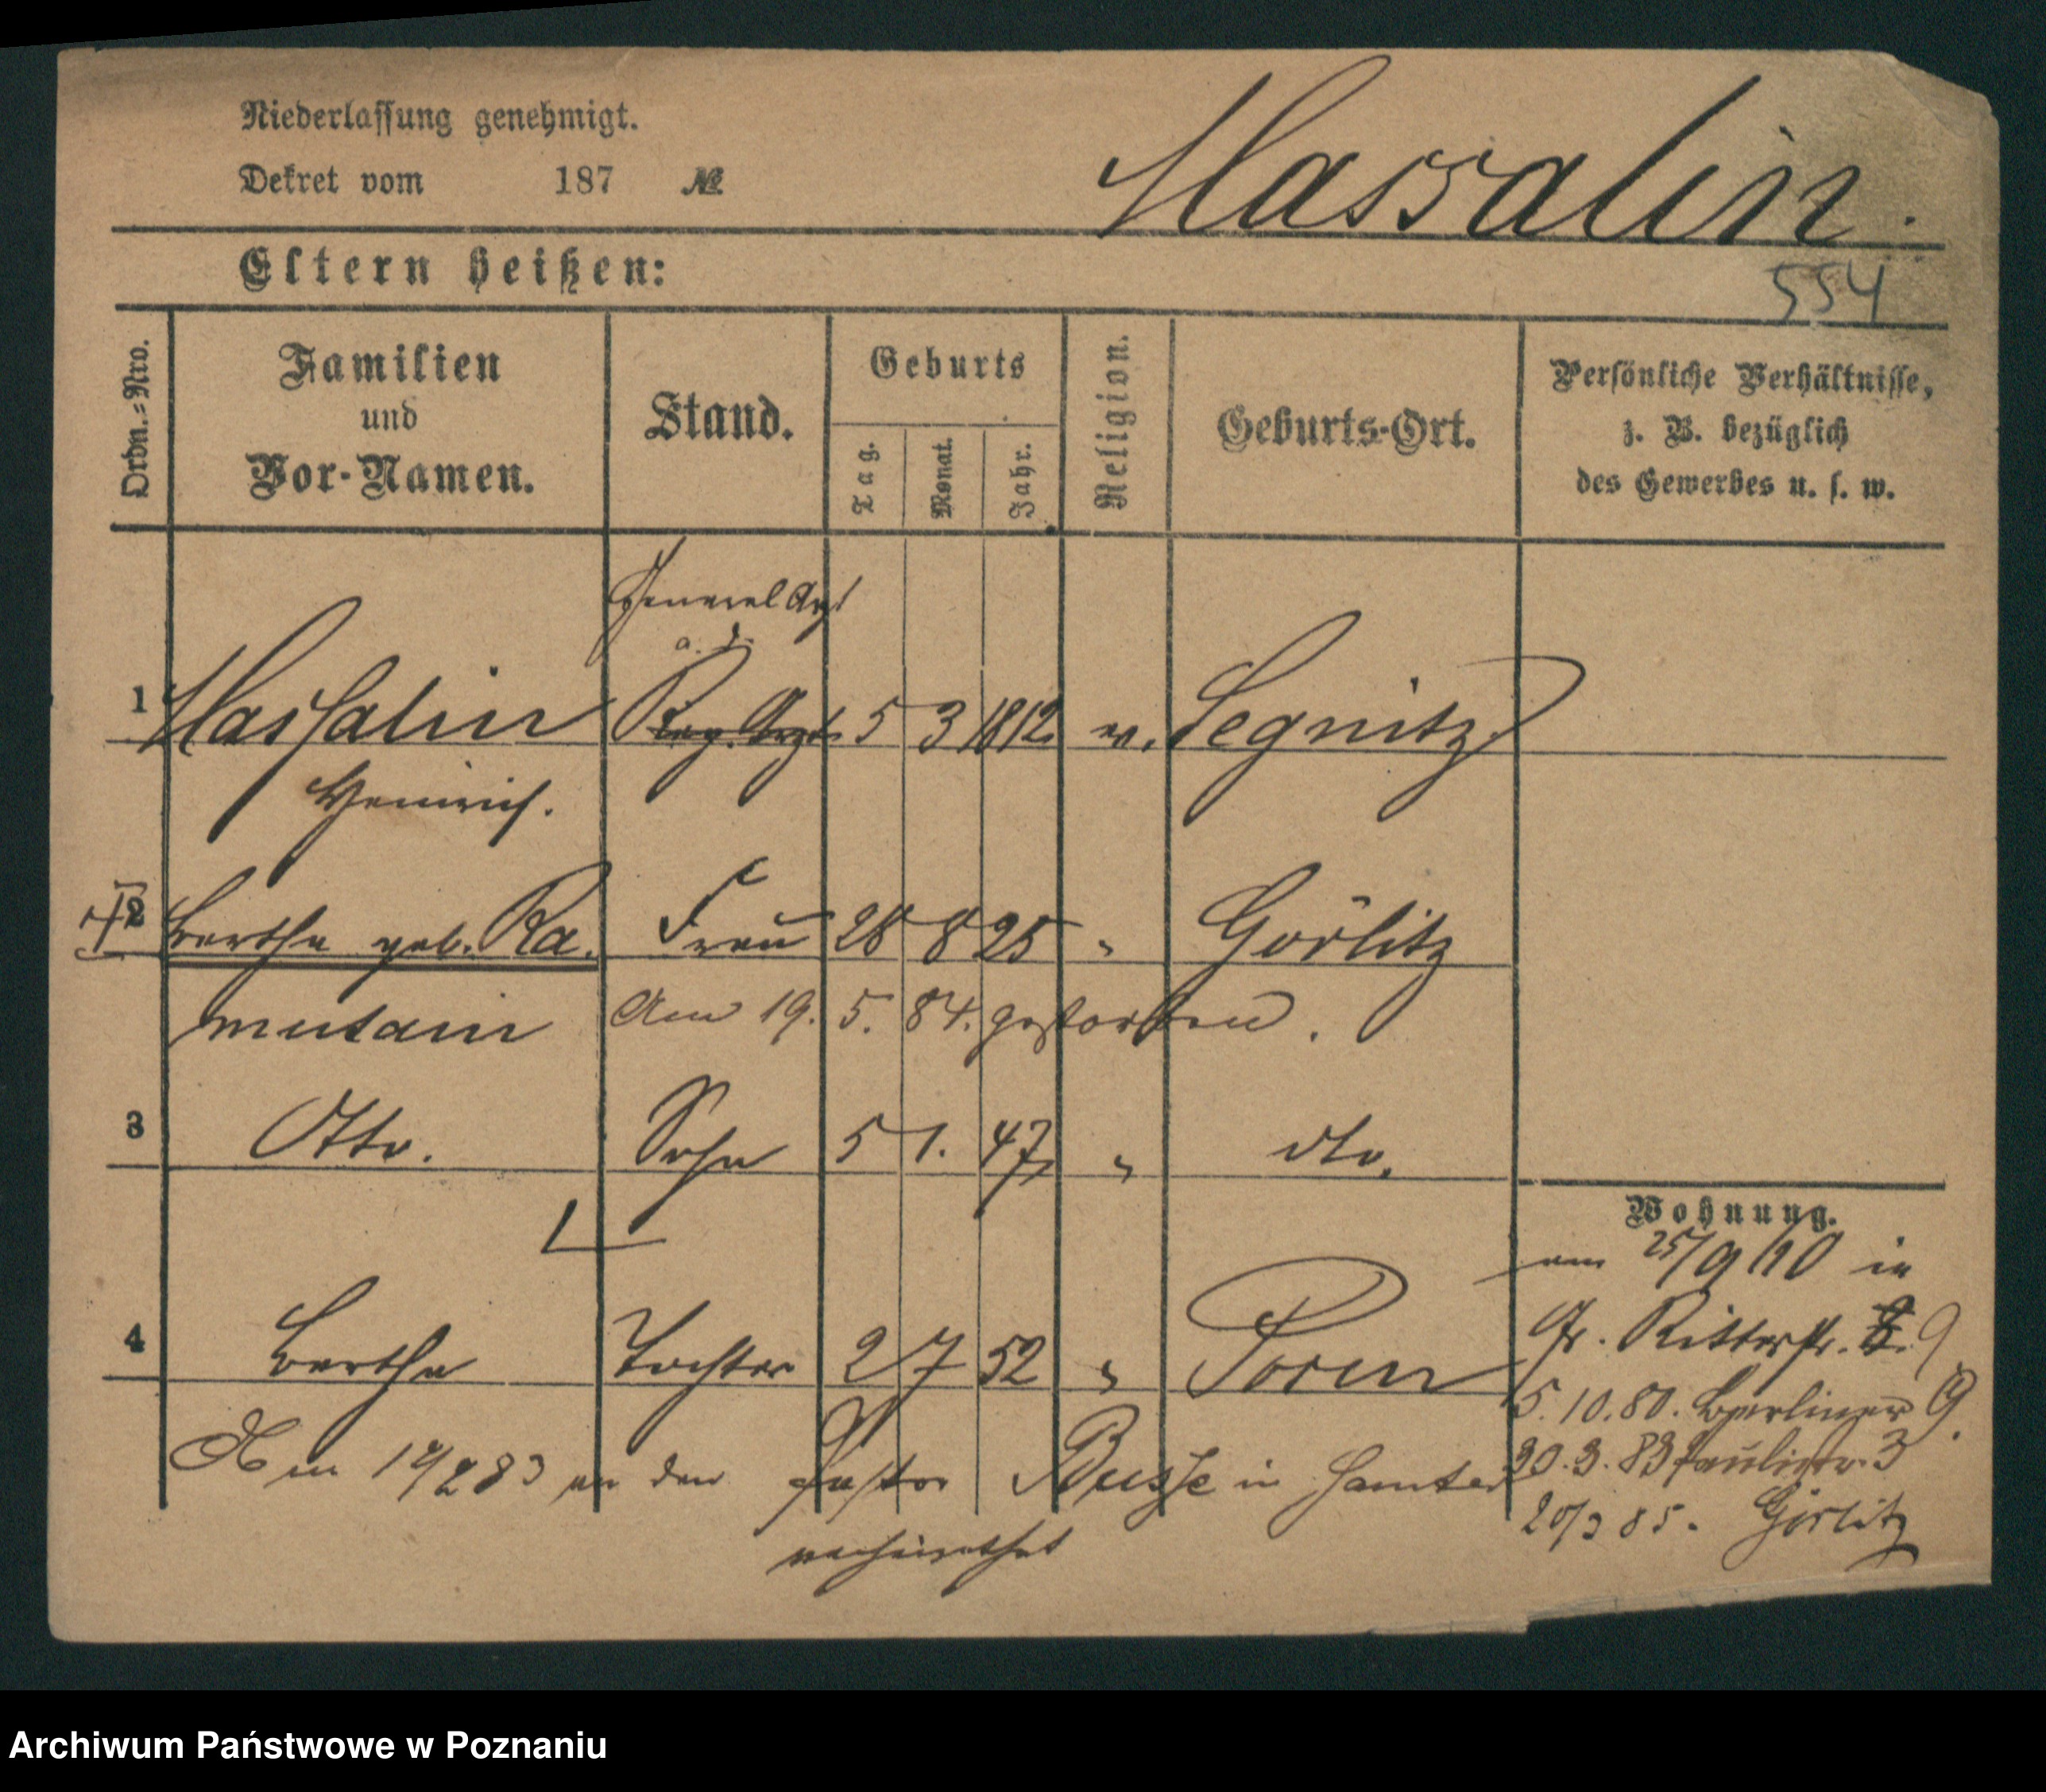 Niederlassung genehmigt.
Dekret vom 187 №
Massalin.
Eltern heißen:
554
Ordn.=Nro.
Familien
und
Vor-Namen.
Stand.
Geburts
Tag.
Monat.
Jahr.
Religion.
Geburts-Ort.
Persönliche Verhältnisse,
z. B. bezüglich
des Gewerbes u. s. w.
General Arzt
a. D.
1 Massalin Reg. Arzt. 5 3 1812
Heinrich.
2 Bertha geb. Ra. Frau 28 8 25 " Görlitz
mutain Am 19. 5. 84. gestorben.
3 Otto. Sohn 5 1. 47 " dto.
Wohnung.
am 25/9 10 in
4 Bertha Tochter 2 7 52 " Posen
Gr. Ritterstr. 9
5. 10. 80. Berliner 9.
Am 19/2 83 an den Pastor Busse in Samter
30. 3. 83 Paulistr. 3
verheirathet
20/3 85. Görlitz
Archiwum Państwowe w Poznaniu